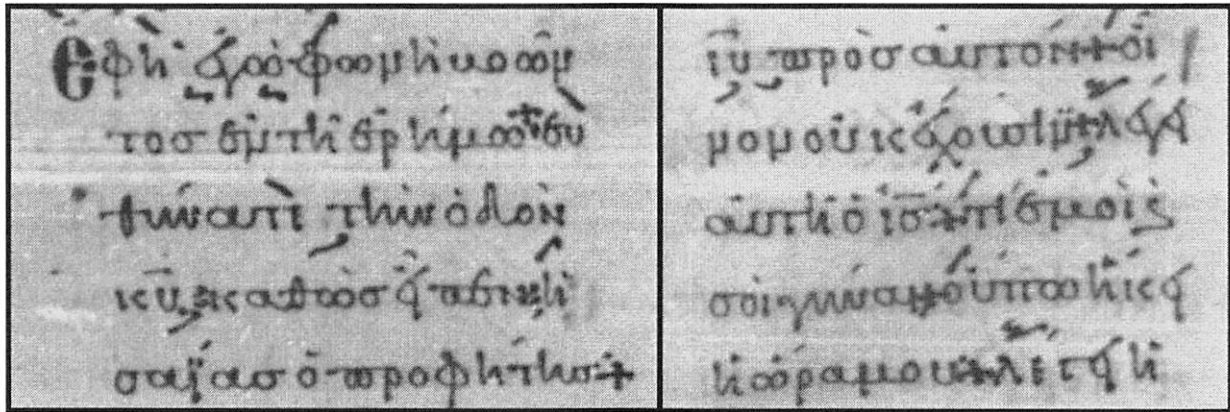 Ἔφη ἐγὼ φωνὴ βοῶν
τος ἐν τῇ ἐρήμω + εὐ
θύνατε τὴν ὁδὸν
κ̅υ̅ + καθὼς εἶπεν ἠ
σαΐας ὁ προφήτης +
ι̅υ̅ πρὸς αὐτόν + οἶ
νον οὐκ ἔχουσιν + λέγει
αὐτῇ ὁ ι̅ς̅ + τί ἐμοὶ ϗ
σοὶ γύναι + οὔπω ἥκει
ἡ ὥρα μου + λέγει ἡ